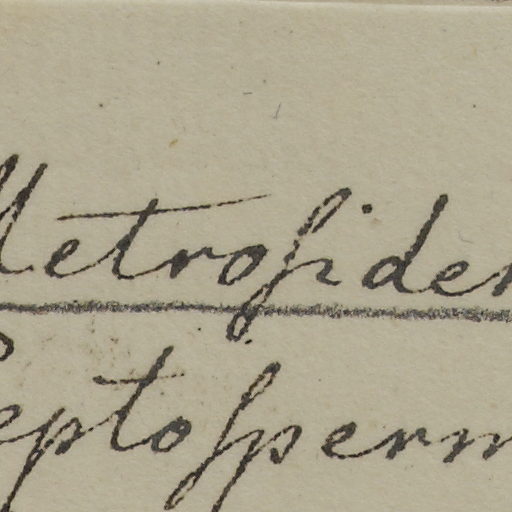 Metrosider
Leptosperm